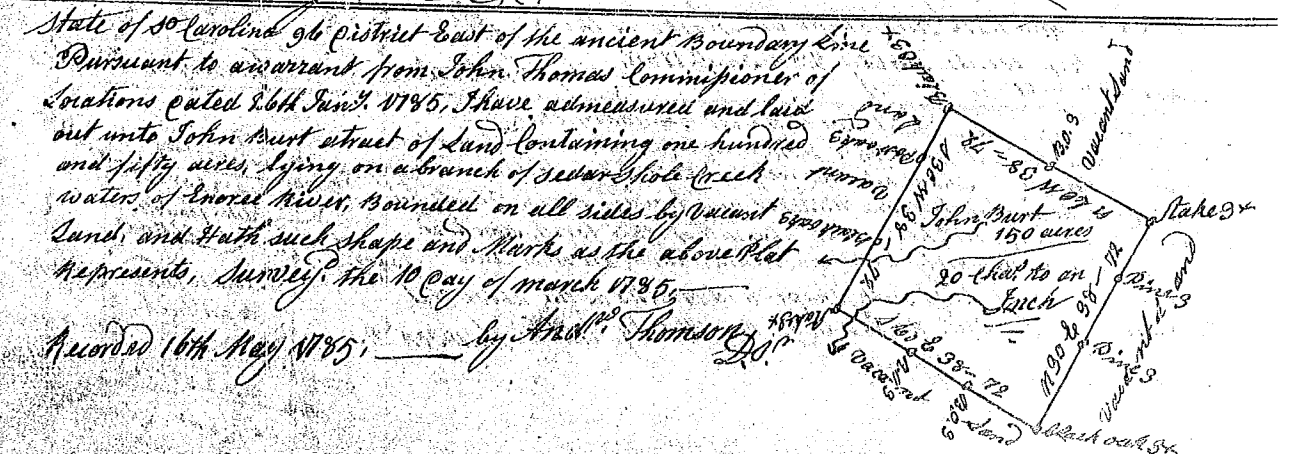 State of So Carolina 96 District East of the ancient Boundary Line
Pursuant to a warrant from John Thomas Commissioner of
Locations dated 26th Jany. 1785, I have admeasured and laid
out unto John Burt a tract of Land Containing one hundred
and fifty acres, lying on a branch of sedar Shole Creek
waters of Enoree River, Bounded on all sides by vacant
Land, and Hath such shape and Marks as the above Plat
Represents, Survey'd. the 10 Day of march 1785,
Recorded 16th May 1785, by Andw. Thomson
D.S.
John Burt
150 acres
20 Chas to an
Inch
Stake 3x
Pine 3
Pine 3
black oak 3x
B.O. 3
Vacant Land
N 60 W 38-72
Vacant
Land
Land